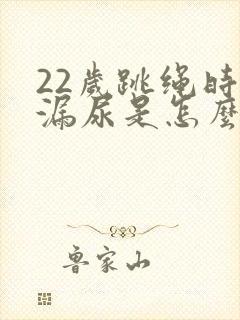 22歲跳绳時
漏尿是怎麼
鲁家山